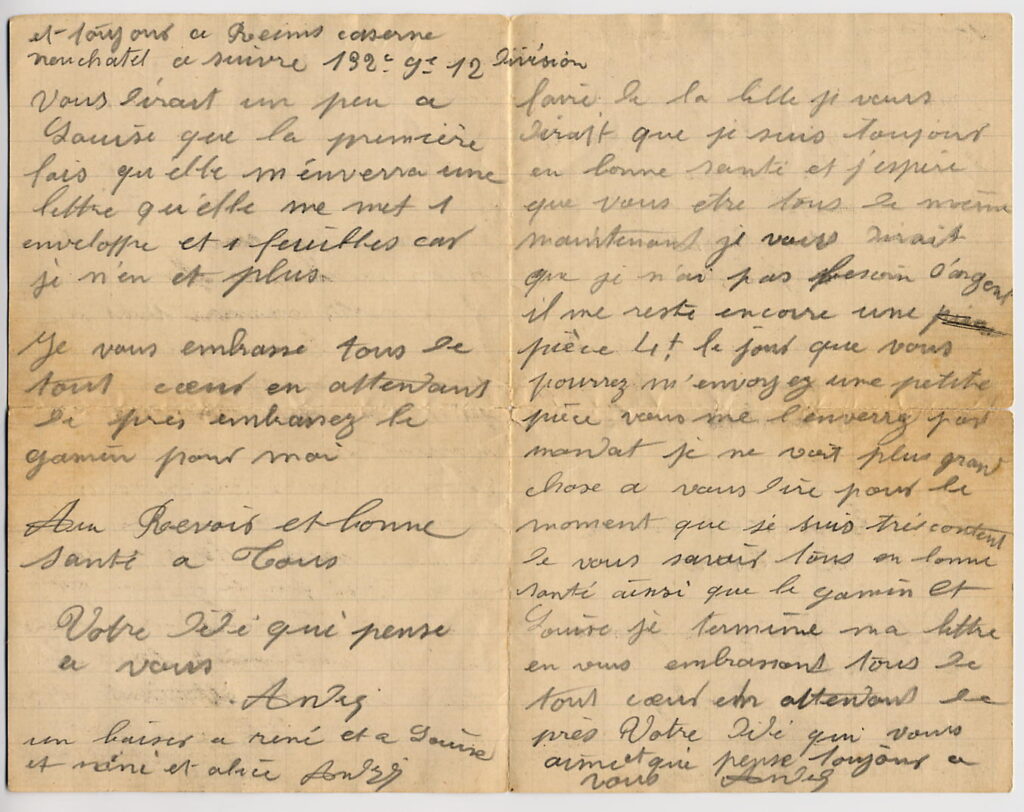 et toujour a Reims caserne
neuchatel a suivre 132e ge 12 Division
Vous dirait un peu a
Louise que la première
fois qu'elle m'énverra une
lettre qu'élle me met 1
enveloffe et 1 feuilles car
je n'en et plus.
Je vous embrasse tous de
tout cœur en attendant
de près embrassez le
gamin pour moi
Au Revoir et bonne
santé a Tous
Votre Dédé qui pense
a vous
André
un baiser a rené et a Louise
et néné et alice André
faire de la bille je vous
dirait que je suis toujour
en bonne santé et j'espère
que vous etre tous de même
maintenant je vous dirait
que je n'ai pas besoin d'argent
il me reste encore une
pièce 4f le jour que vous
pourrez m'envoyez une petite
pièce vous me l'enverrez par
mandat je ne voit plus grand
chose a vous dire pour le
moment que je suis très content
de vous savoir tous en bonne
santé ainsi que le gamin et
Louise je termine ma lettre
en vous embrassant tous de
tout cœur en attendant de
près Votre Dédé qui vous
aime et qui pense toujour a
vous André